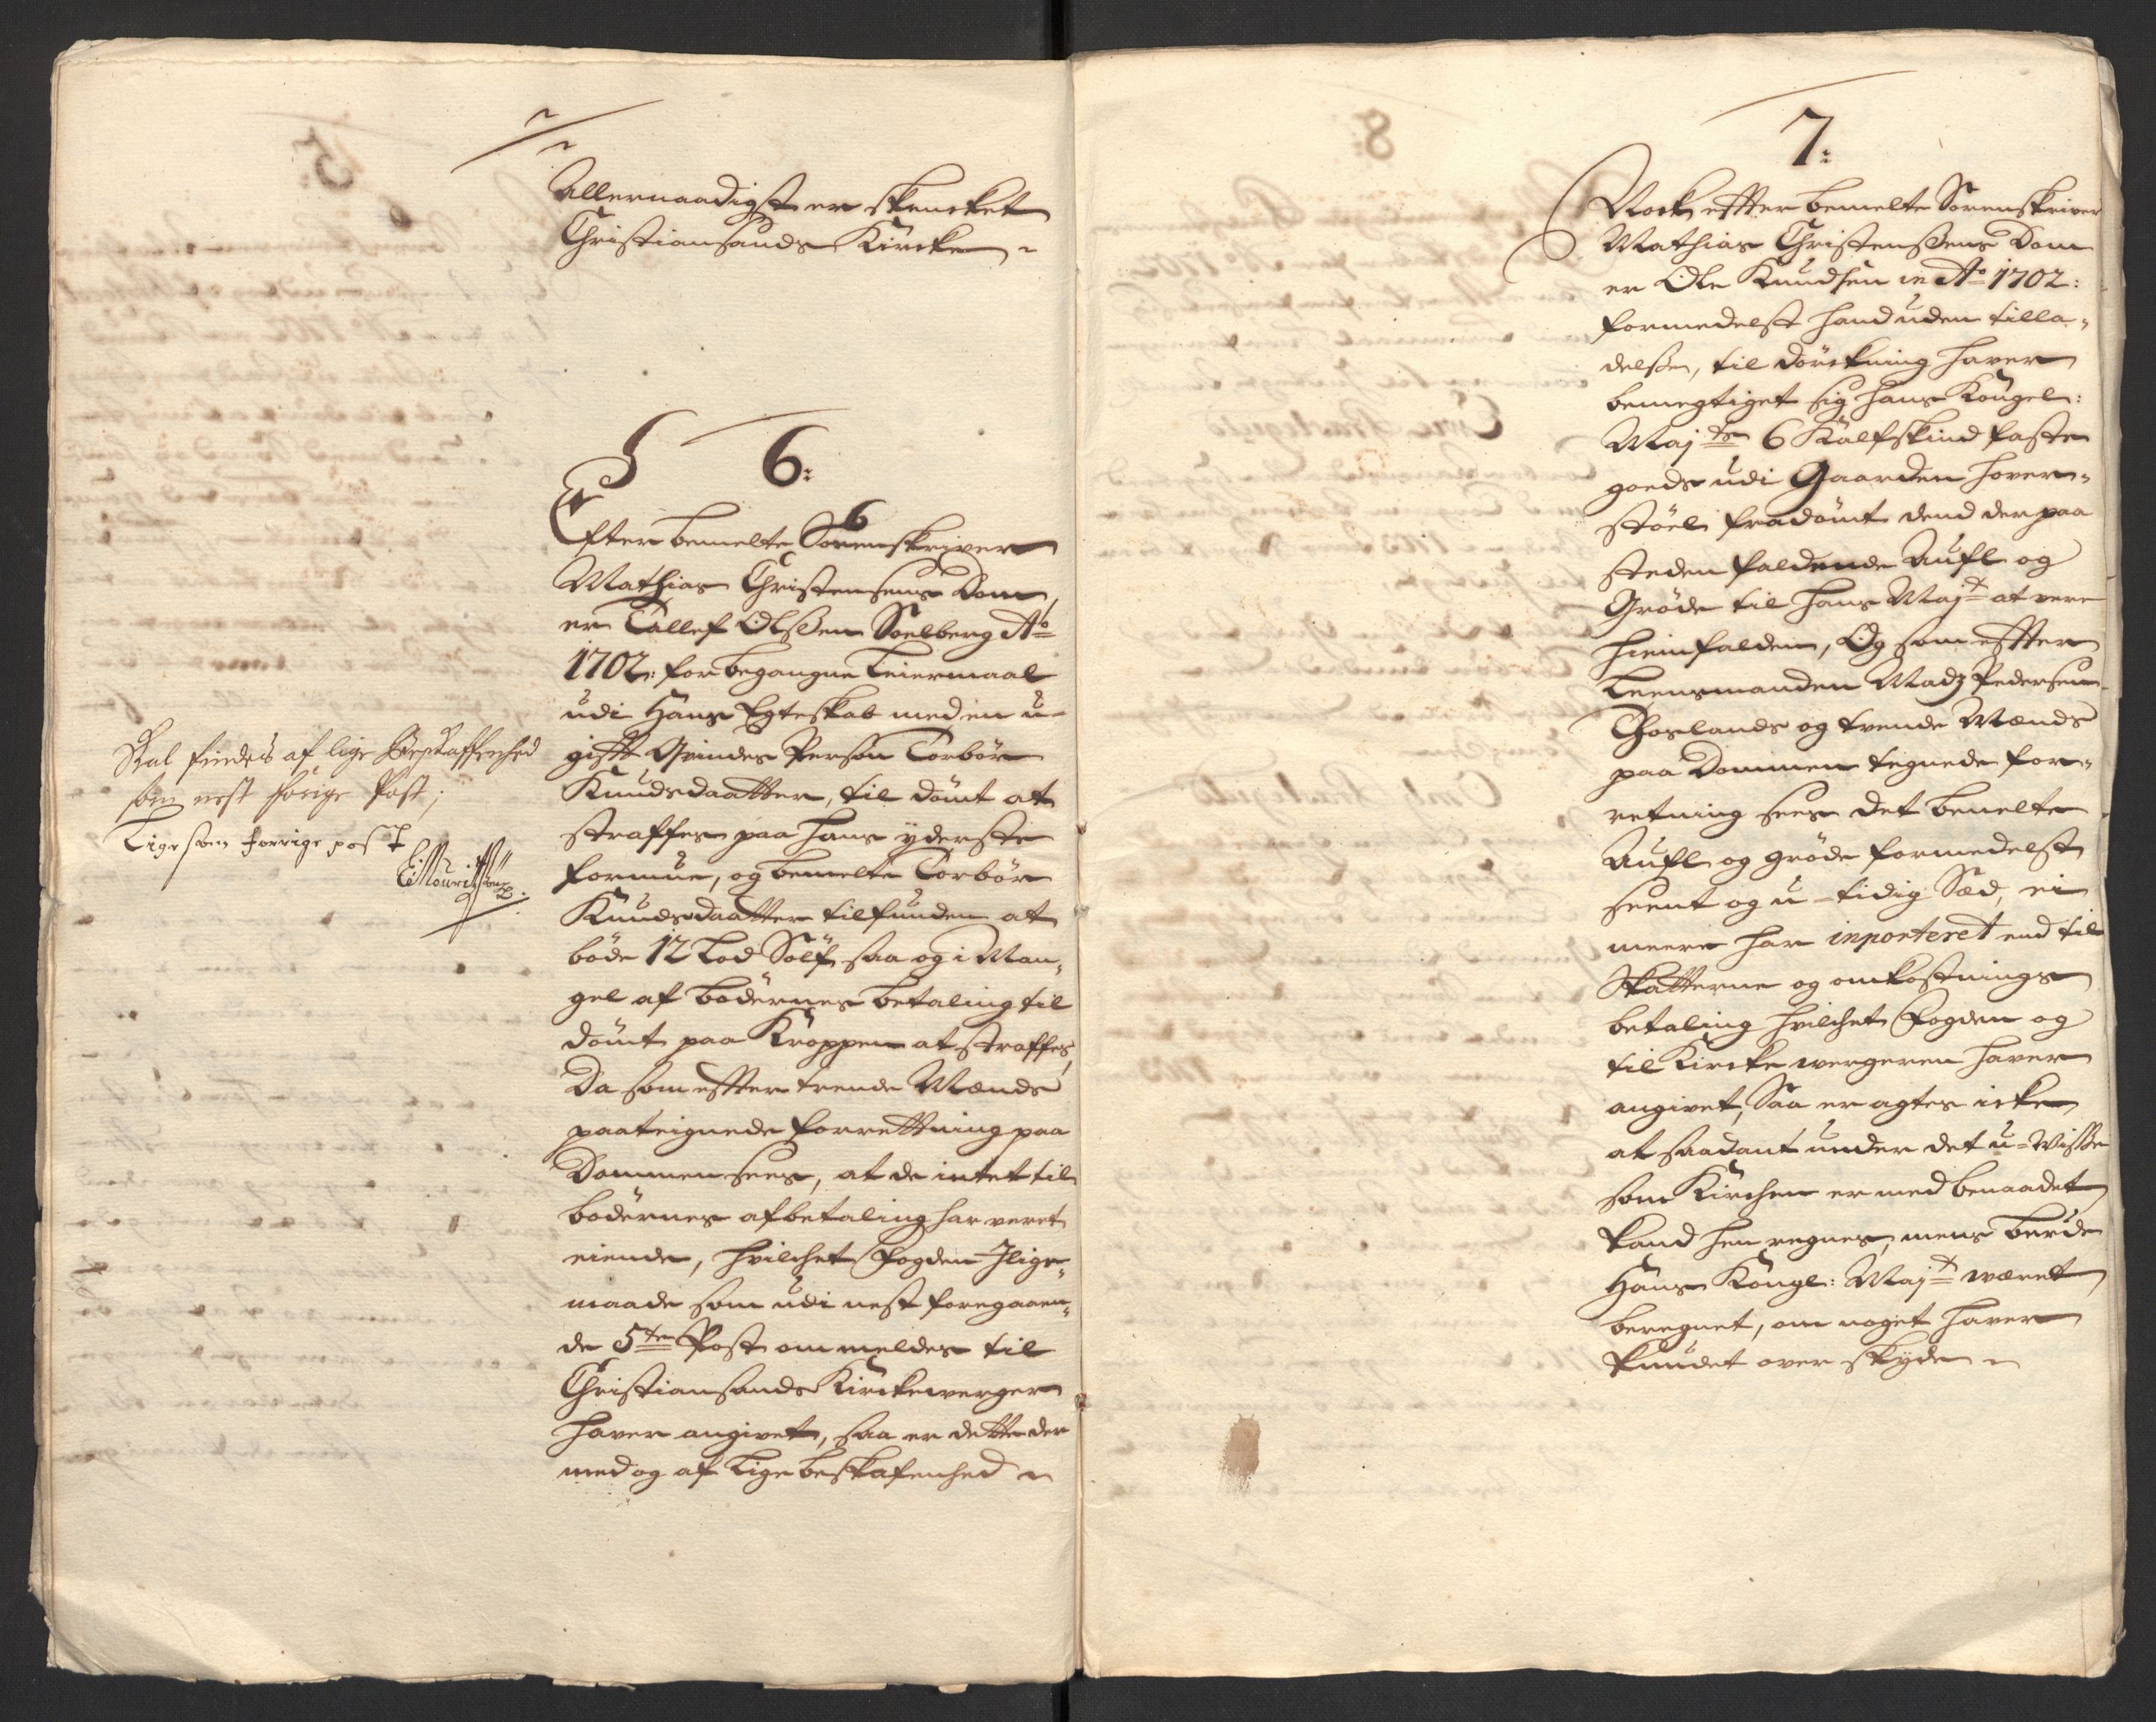 Allernaadigst er skencket
Christiansands Kircke
6:
Efter bemelte Sorenskriver
Mathias Christensens Dom,
er Tallef Olsßen Soelberg Ao
1702: for begangne Leiermaal
udi Hans Egteskab med en u-
gifft Qvindes Person Torbör
Knudsdaatter, til dömt at
straffes paa hans yderste
formue, og bemelte Torbör
Knudsdaatter tilfunden at
böde 12 Lod Sölf, saa og i Man-
gel af bödernes betaling til
dömt paa Kroppen at straffes,
Da som effter trende Mænds
paateignede forrettning paa
Dommen sees, at de intet til
bödernes afbetaling har veret
eiende, hvilchet Fogden Jlige-
maade som udi nest foregaaen-
de 5te Post ommeldes til
Christiansands Kirckeverger
haver angivet, saa er dette der
med og af Lige beskafenhed
Skal findes af lige Beskaffenhed
som nest forige Post;
Lige som forrige post
7:
Nock effter bemelte Sorenskriver
Mathias Christensßens Dom
er Ole Knudsen in Ao 1702:
formedelst hand uden tilla-
delße, til dörckning haver
bemegtiget sig hans Kongel:
Majts 6 Kalfskind faste
goeds udi Gaarden hover-
stöel fradömt dend der paa
steden faldende Aufl og
Gröde til hans Majt at vere
hiemfalden, Og som effter
Leensmanden Madz Pedersen
Choslands og tvende Mænds
paa Dommen tegnede for-
retning sees det bemelte
Aufl og gröde formedelst
seent og u-tidig Sæd, ei
meere har inporteret end til
Skatterne og omkostnings
betaling hvilchet Fogden og
til Kirckevergeren haver
angivet, Saa er agtes icke
at saadant under det u-visße
som Kirchen er med benaadet
kand hen regnes, mens burde
Hans Kongl: Majt været
beregnet, om noget haver
kundet over skyde